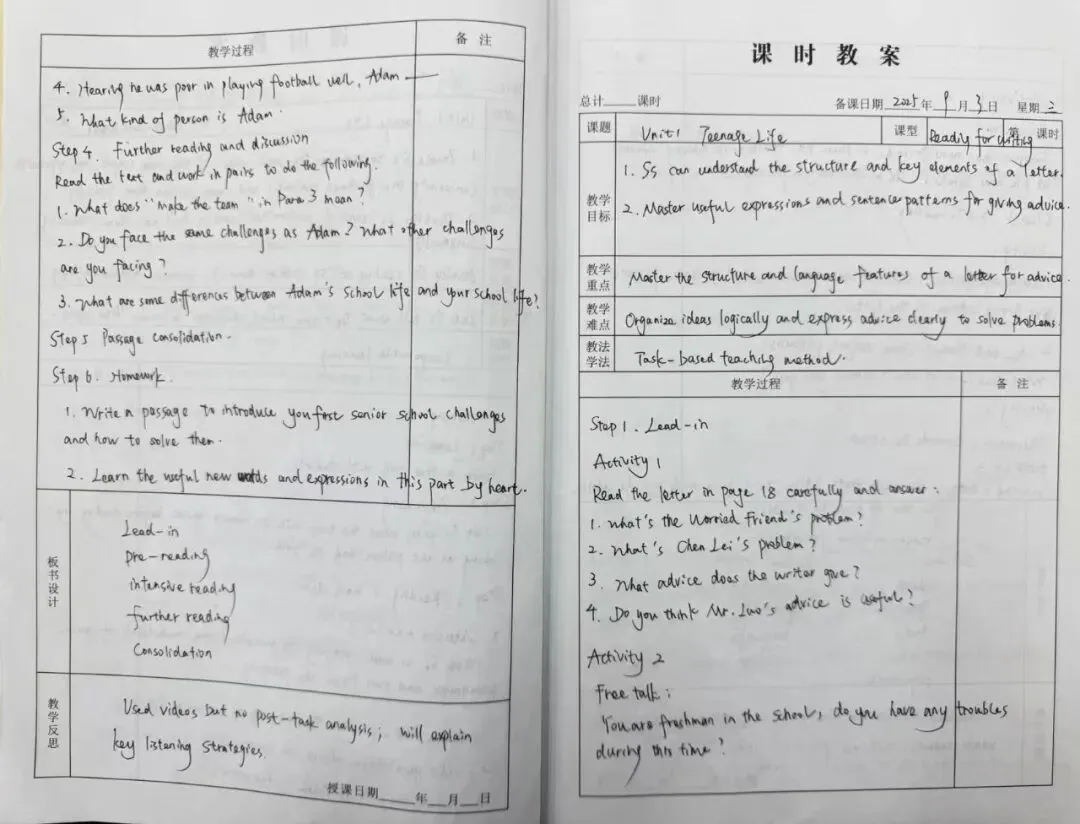 教学过程 备注
4. Hearing he was poor in playing football well, Adam ——
5. What kind of person is Adam.
Step 4 Further reading and discussion
Read the text and work in pairs to do the following.
1. What does "make the team" in Para 3 mean?
2. Do you face the same challenges as Adam? What other challenges
are you facing?
3. What are some differences between Adam's school life and your school life?
Step 5 Passage consolidation.
Step 6. Homework.
1. Write a passage to introduce you first senior school challenges
and how to solve them.
2. Learn the useful new words and expressions in this part by heart.
板书设计
Lead-in
pre-reading
intensive reading
further reading
Consolidation
教学反思
Used videos but no post-task analysis; will explain
key listening strategies.
授课日期____年___月___日
课时教案
总计____课时 备课日期 2025年 9月 3日 星期 三
课题 Unit 1 Teenage Life 课型 Reading for writing 第 课时
教学目标
1. Ss can understand the structure and key elements of a letter.
2. Master useful expressions and sentence patterns for giving advice.
教学重点 Master the structure and language features of a letter for advice.
教学难点 Organize ideas logically and express advice clearly to solve problems.
教法学法 Task-based teaching method.
教学过程 备注
Step 1. Lead-in
Activity 1
Read the letter in page 18 carefully and answer:
1. What's the Worried Friend's problem?
2. What's Chen Lei's problem?
3. What advice does the writer give?
4. Do you think Mr. Luo's advice is useful?
Activity 2
Free talk:
You are freshman in the school, do you have any troubles
during this time?